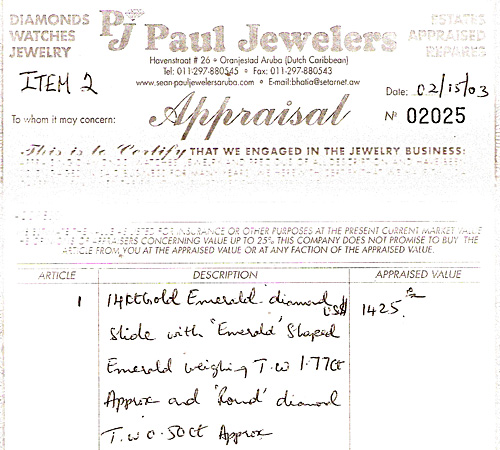 DIAMONDS
WATCHES
JEWELRY
PJ Paul Jewelers
ESTATES
APPRAISED
REPAIRS
Havenstraat # 26 • Oranjestad Aruba (Dutch Caribbean)
Tel: 011-297-880545 • Fax: 011-297-880543
www.sean-pauljewelersaruba.com • E-mail:bhatia@setarnet.aw
ITEM 2
Date: 02/15/03
To whom it may concern:
Appraisal
Nº 02025
This is to Certify THAT WE ENGAGED IN THE JEWELRY BUSINESS:
FOR INSURANCE OR OTHER PURPOSES AT THE PRESENT CURRENT MARKET VALUE
OF APPRAISERS CONCERNING VALUE UP TO 25% THIS COMPANY DOES NOT PROMISE TO BUY THE
ARTICLE FROM YOU AT THE APPRAISED VALUE OR AT ANY FACTION OF THE APPRAISED VALUE.
ARTICLE DESCRIPTION APPRAISED VALUE
1 14KtGold Emerald - diamond US$ 1425.
Slide with 'Emerald' Shaped
Emerald weighing T.W 1.77Ct
Approx and 'Round' diamond
T.W 0.50Ct Approx